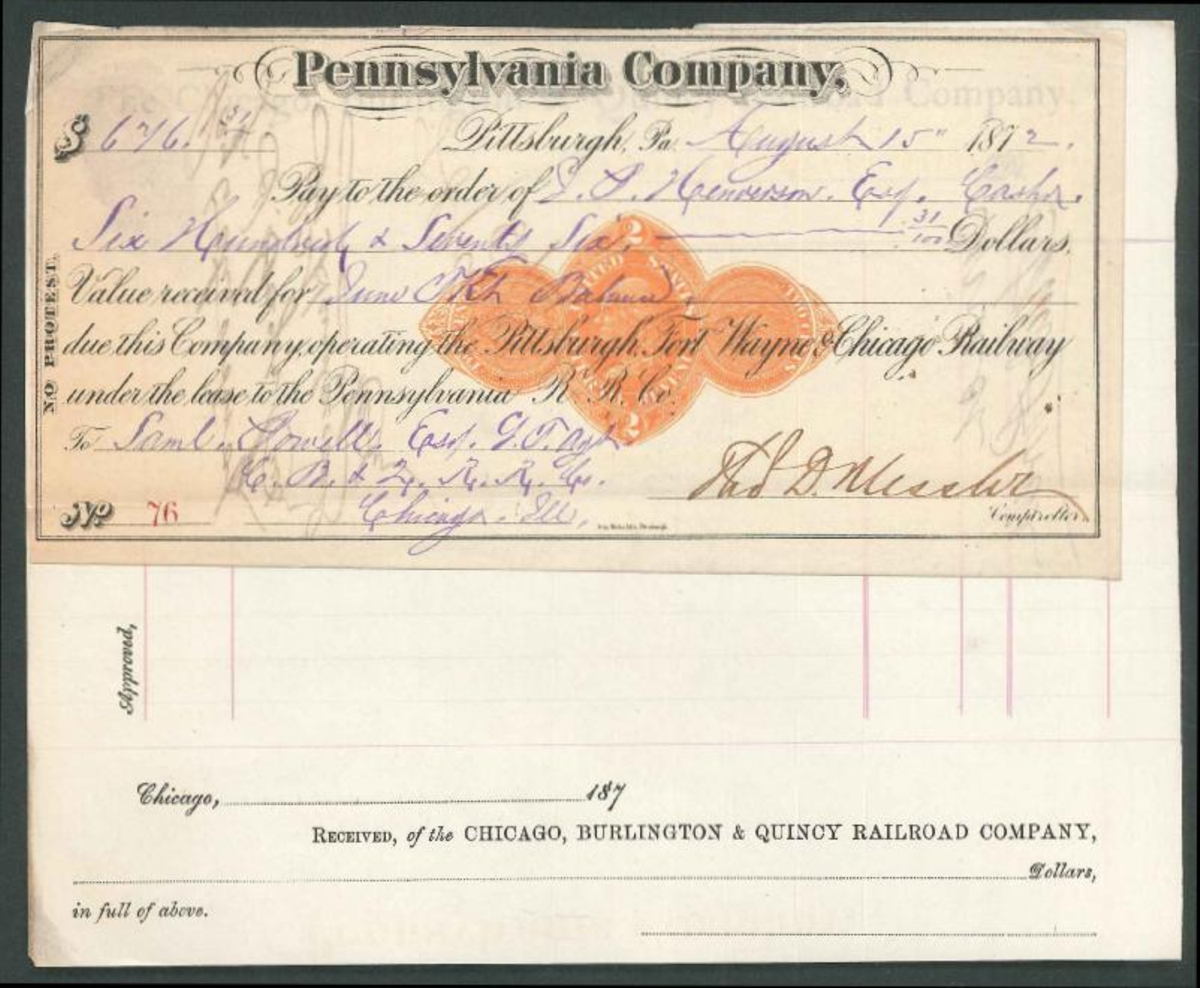 Pennsylvania Company,
$ 676. 31/ Pittsburgh, Pa. August 15" 1872.
Pay to the order of Henderson. Esq. Cashr.
Six Hundred & Seventy Six. 31/100 Dollars.
Value received for June Tkt. Balance.
due this Company, operating the Pittsburgh, Fort Wayne & Chicago Railway
under the lease to the Pennsylvania R. R. Co.
To Saml. Powell. Esq. G. T. Agt.
C. B. & Q. R. R. Co.
Chicago. Ill.
No 76
Comptroller.
Thos D. Messler
NO PROTEST.
2
UNITED STATES
2
Approved,
Chicago, 187
RECEIVED, of the CHICAGO, BURLINGTON & QUINCY RAILROAD COMPANY,
Dollars,
in full of above.